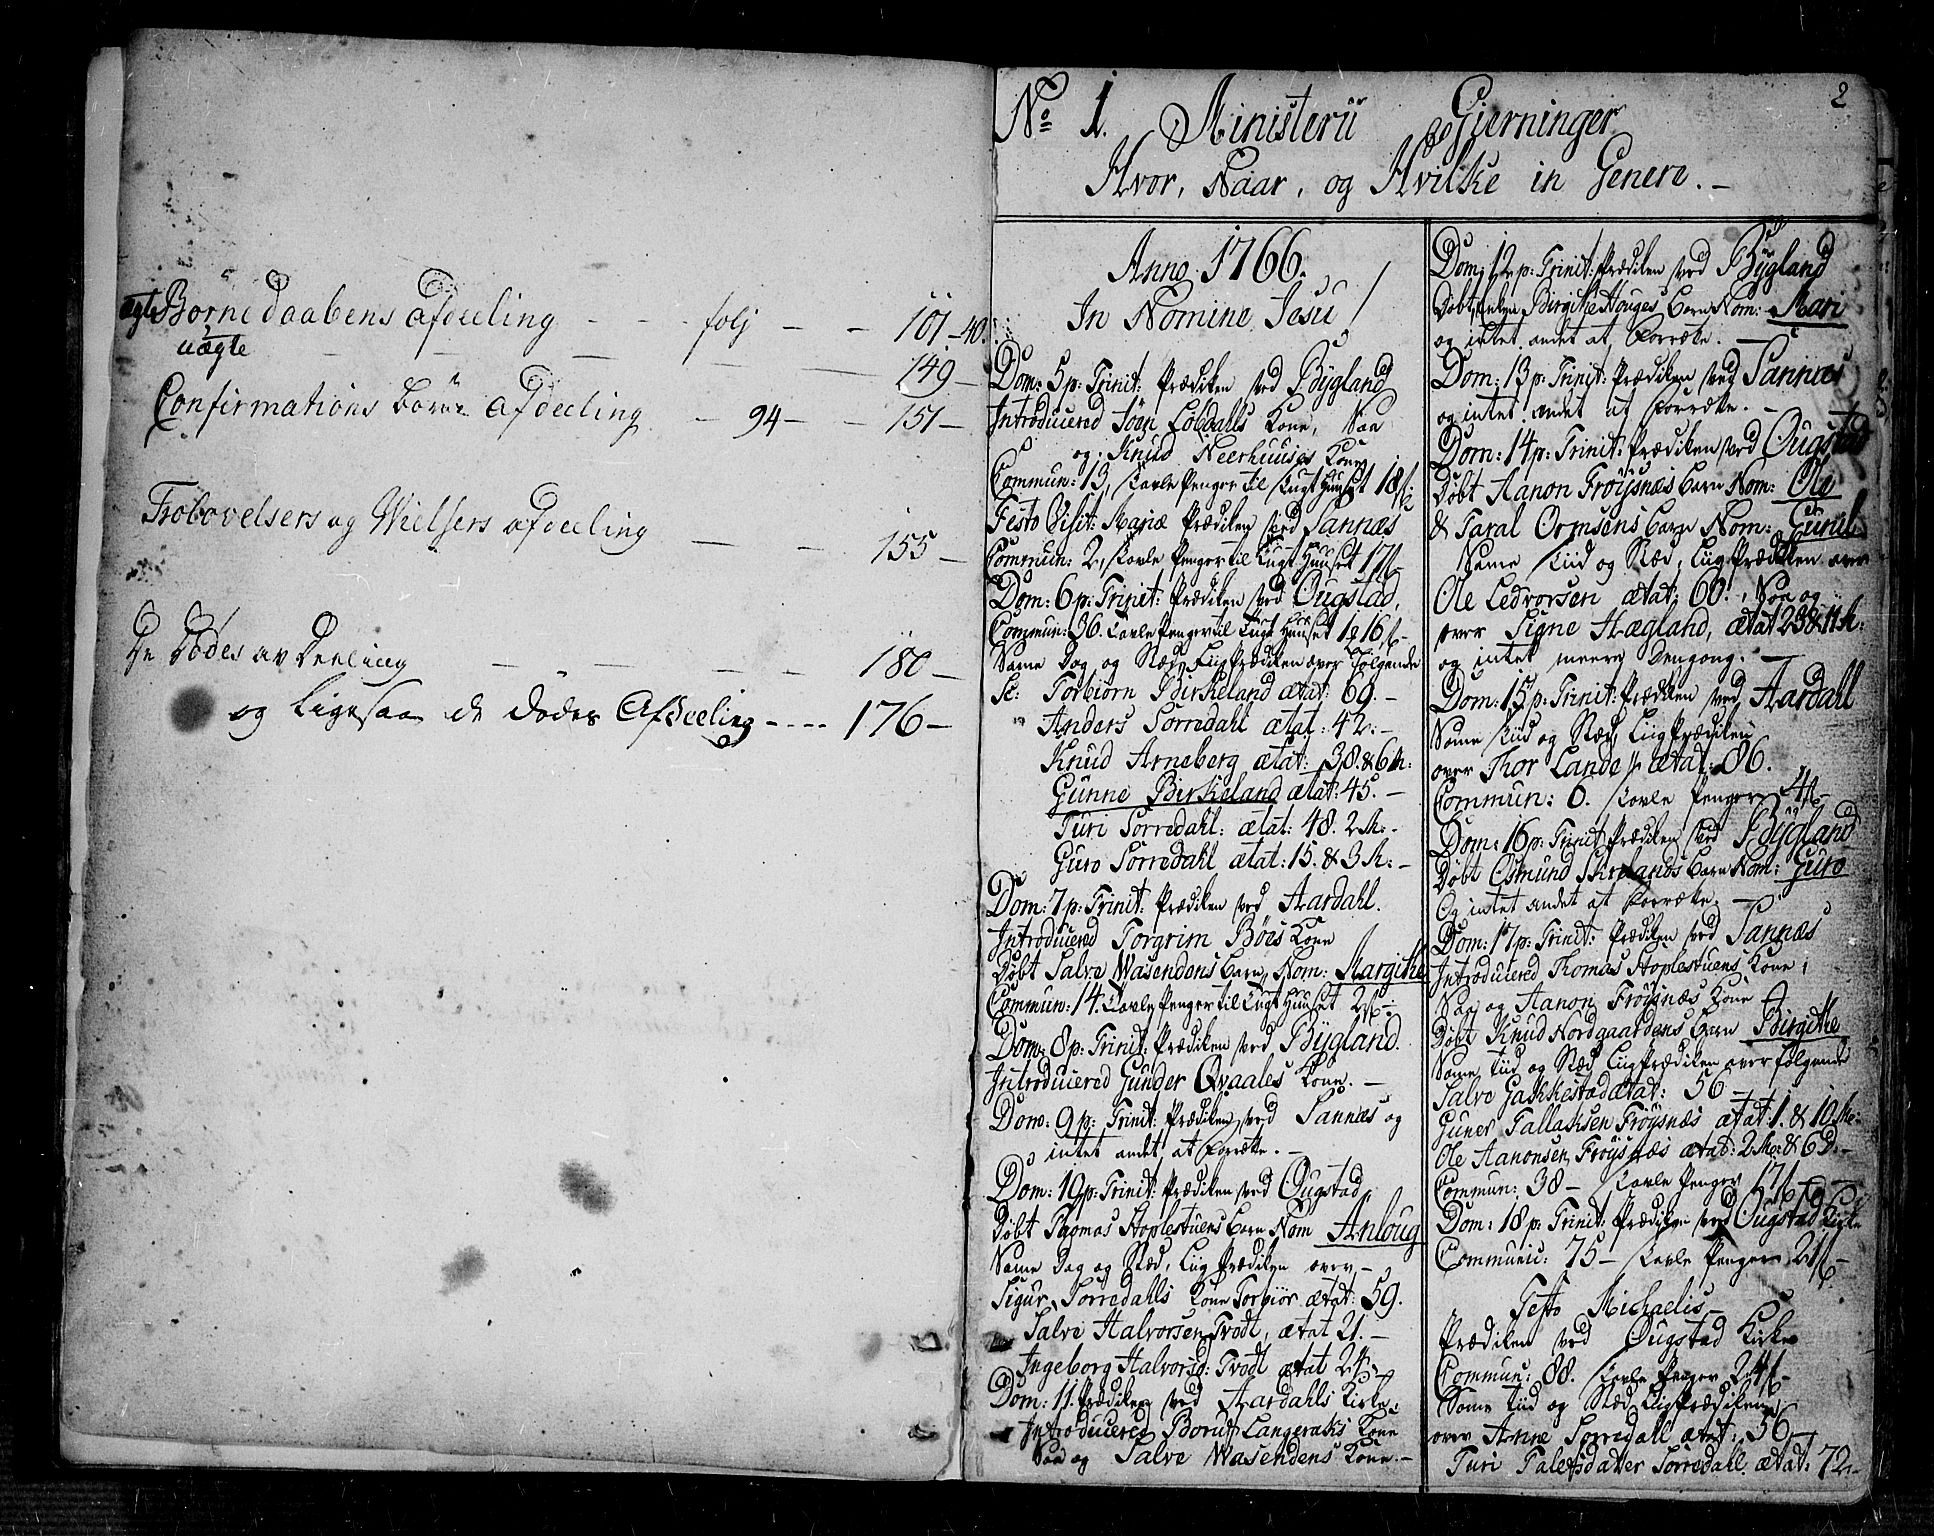 ægte Børne daabens afdeeling - - folj - - 101-40.
uægte - - - 149-
Confirmations børns afdeeling - 94 - - 151-
Trolovelsers og Vielsers afdeeling - - 155-
De Dødes av Deeling - - - 180-
og Ligesaa de Dødes Afdeeling - - - - 176-
2
No 1. Ministerii Gierninger
Hvor, Naar, og Hvilke in Genere. -
Anno 1766.
In Nomine Jesu /
Dom: 5 p: Trinit: Prædiken ved Bÿgland
Introducered Søen Lobdalls Kone, Saa
og Knud Neerhuuses Kone
Commun: 13, Tavle Penger til Tugt Huuset 18 s:
Festo Visit: Mariæ Prædiken ved Sannæs
Commun: 2, Tavle Penger til Tugt Huuset 17 s-
Dom: 6 p: Trinit: Prædiken ved Ougstad,
Commun: 36. Tavle Penger til Tugt Huuset
Same Dag og Stæd, Liig Prædiken over følgende
Sc: Torbiørn Birkeland ætat: 69. -
Anders Sorredahl ætat: 42. -
Knud Arneberg ætat: 38. & 6 M:
Gunne Birkeland ætat: 45. -
Turi Sorredahl: ætat: 48. 2 M: -
Guro Sorredahl ætat: 15. & 3 M: -
Dom: 7 p: Trinit: Prædiken ved Aardahl.
Introducered Torgrim Bøes Kone
Døbt Salve Wasendens Barn, Nom: Margithe
Commun: 14. Tavle Penger til Tugt Huuset 2 s -
Dom: 8 p: Trinit: Prædiken ved Bÿgland.
Introducered Gunder Qvaales Kone. -
Dom: 9 p: Trinit: Prædiken ved Sannæs og
intet andet at forrette. -
Dom: 10 p: Trinit: Prædiken ved Ougstad
Døbt Thomas Stoplestuens Barn Nom Anloug
Same Dag og Stæd, Liig Prædiken over -
Sigur Sorredahls Kone Torbiør ætat: 59.
Salve Halvorsen Tvedt, ætat 21. -
Ingeborg Halvorsd: Tvedt ætat 24 -
Dom: 11. Prædiken ved Aardahls Kirke,
Introducered Boruf Langeraks Kone
Saa og Salve Wasendens Kone. -
Dom: 12 p: Trinit: Prædiken ved Bÿgland
Døbt Birgithe Houges Barn Nom: Mari
og intet andet at forrette. -
Dom: 13 p: Trinit: Prædiken ved Sannæs
og intet andet at forrette. -
Dom: 14 p: Trinit: Prædiken ved Ougstad
Døbt Aanon Frøÿsnæs Barn Nom: Ole
& Taral Ormsens Barn Nom: Gunil
Same Tiid og Stæd, Liig Prædiken over
Ole Ledvorsen ætat: 60., Saa og
over Signe Hægland, ætat 23 & 11 M:
og intet meere dengang. -
Dom: 15 p: Trinit: Prædiken ved Aardahl
Same Tiid og Stæd, Liig Prædiken
over Thor Lande ætat: 86.
Commun: 6. Tavle Penger 4 s -
Dom: 16 p: Trinit: Prædiken ved Bÿgland
Døbt Osmund Skrelands Barn Nom: Guro
Og intet andet at forrette. -
Dom: 17 p: Trinit: Prædiken ved Sannæs
Introducered Thomas Stoplestuens Kone,
Saa og Aanon Frøÿsnæs Kone
Døbt Knud Nordgaardens Barn Birgithe
Same Tiid og Stæd Liig Prædiken over følgende
Salve Gakkestad ætat: 56 -
Guner Tallaksen Frøÿsnæs ætat: 1. & 10 M:
Ole Aanonsen Frøÿsnæs ætat: 2 M: & 6 D. -
Commun: 38 - Tavle Penger 17 s -
Dom: 18 p: Trinit: Prædiken ved Ougstad Kirke
Communic: 75 - Tavle Penger 21 s -
Festo Michaelis
Prædiken ved Ougstad Kirke
Commun: 88. Tavle Penger 24 s -
Same Tiid og Stæd Liig Prædiken
over Anne Sorredall ætat: 56 -
Turi Talefsdatter Sorredahl ætat: 72 -